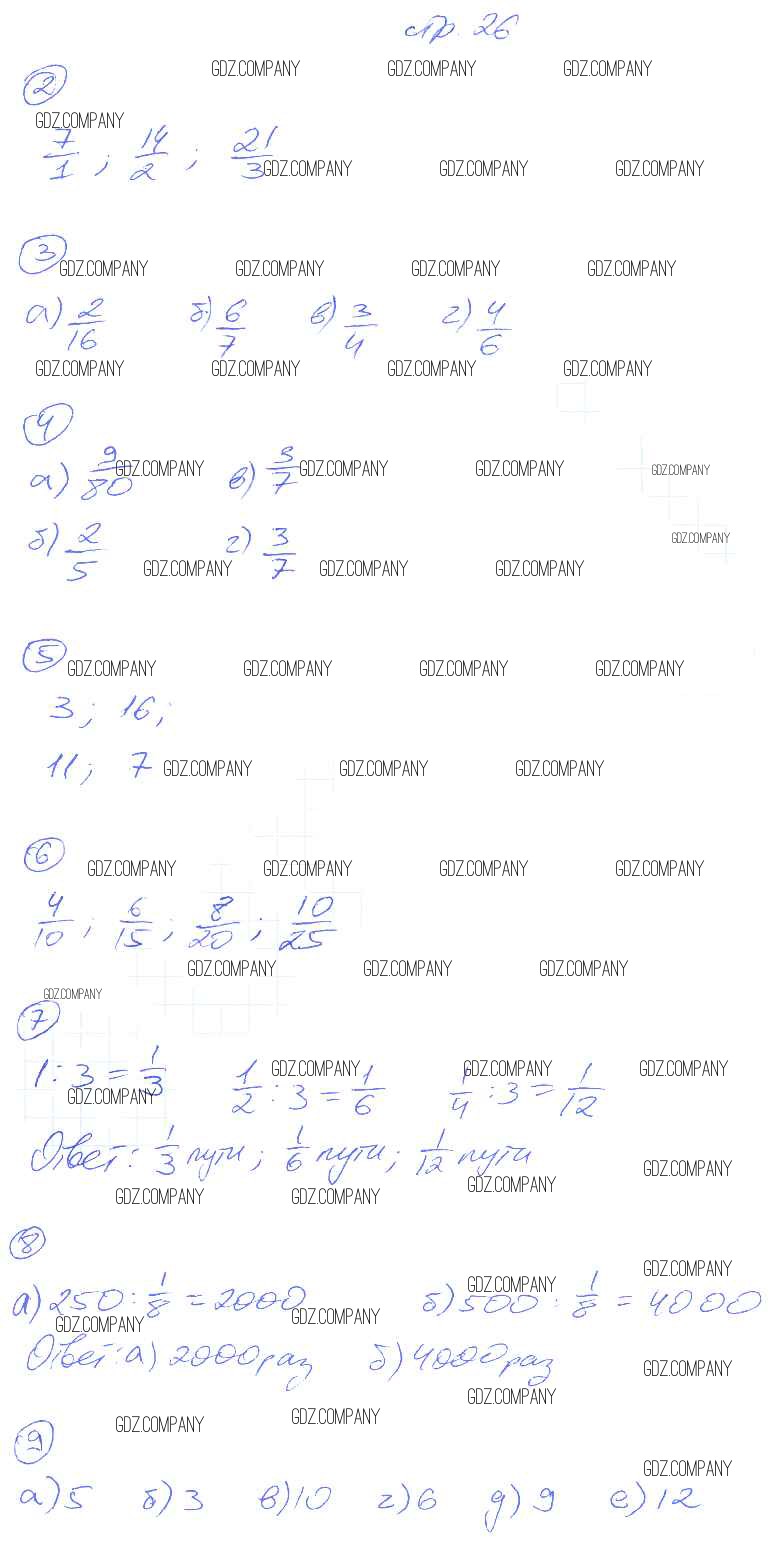 стр. 26
GDZ.COMPANY GDZ.COMPANY GDZ.COMPANY
2
GDZ.COMPANY
7/1 ; 14/2 ; 21/3
GDZ.COMPANY GDZ.COMPANY GDZ.COMPANY
3
GDZ.COMPANY GDZ.COMPANY GDZ.COMPANY GDZ.COMPANY
а) 2/16 б) 6/7 в) 3/4 г) 4/6
GDZ.COMPANY GDZ.COMPANY GDZ.COMPANY GDZ.COMPANY
4
а) 9/80 в) 3/7
GDZ.COMPANY GDZ.COMPANY GDZ.COMPANY GDZ.COMPANY
б) 2/5 г) 3/7
GDZ.COMPANY
GDZ.COMPANY GDZ.COMPANY GDZ.COMPANY
5
GDZ.COMPANY GDZ.COMPANY GDZ.COMPANY GDZ.COMPANY
3; 16;
11; 7
GDZ.COMPANY GDZ.COMPANY GDZ.COMPANY
6
GDZ.COMPANY GDZ.COMPANY GDZ.COMPANY GDZ.COMPANY
4/10 ; 6/15 ; 8/20 ; 10/25
GDZ.COMPANY GDZ.COMPANY GDZ.COMPANY
GDZ.COMPANY
7
1 : 3 = 1/3 1/2 : 3 = 1/6 1/4 : 3 = 1/12
GDZ.COMPANY GDZ.COMPANY GDZ.COMPANY
GDZ.COMPANY
Ответ: 1/3 пути; 1/6 пути; 1/12 пути
GDZ.COMPANY GDZ.COMPANY GDZ.COMPANY GDZ.COMPANY
8
GDZ.COMPANY GDZ.COMPANY
а) 250 : 1/8 = 2000 б) 500 : 1/8 = 4000
GDZ.COMPANY GDZ.COMPANY
Ответ: а) 2000 раз б) 4000 раз
GDZ.COMPANY
GDZ.COMPANY GDZ.COMPANY GDZ.COMPANY
9
GDZ.COMPANY
а) 5 б) 3 в) 10 г) 6 д) 9 е) 12